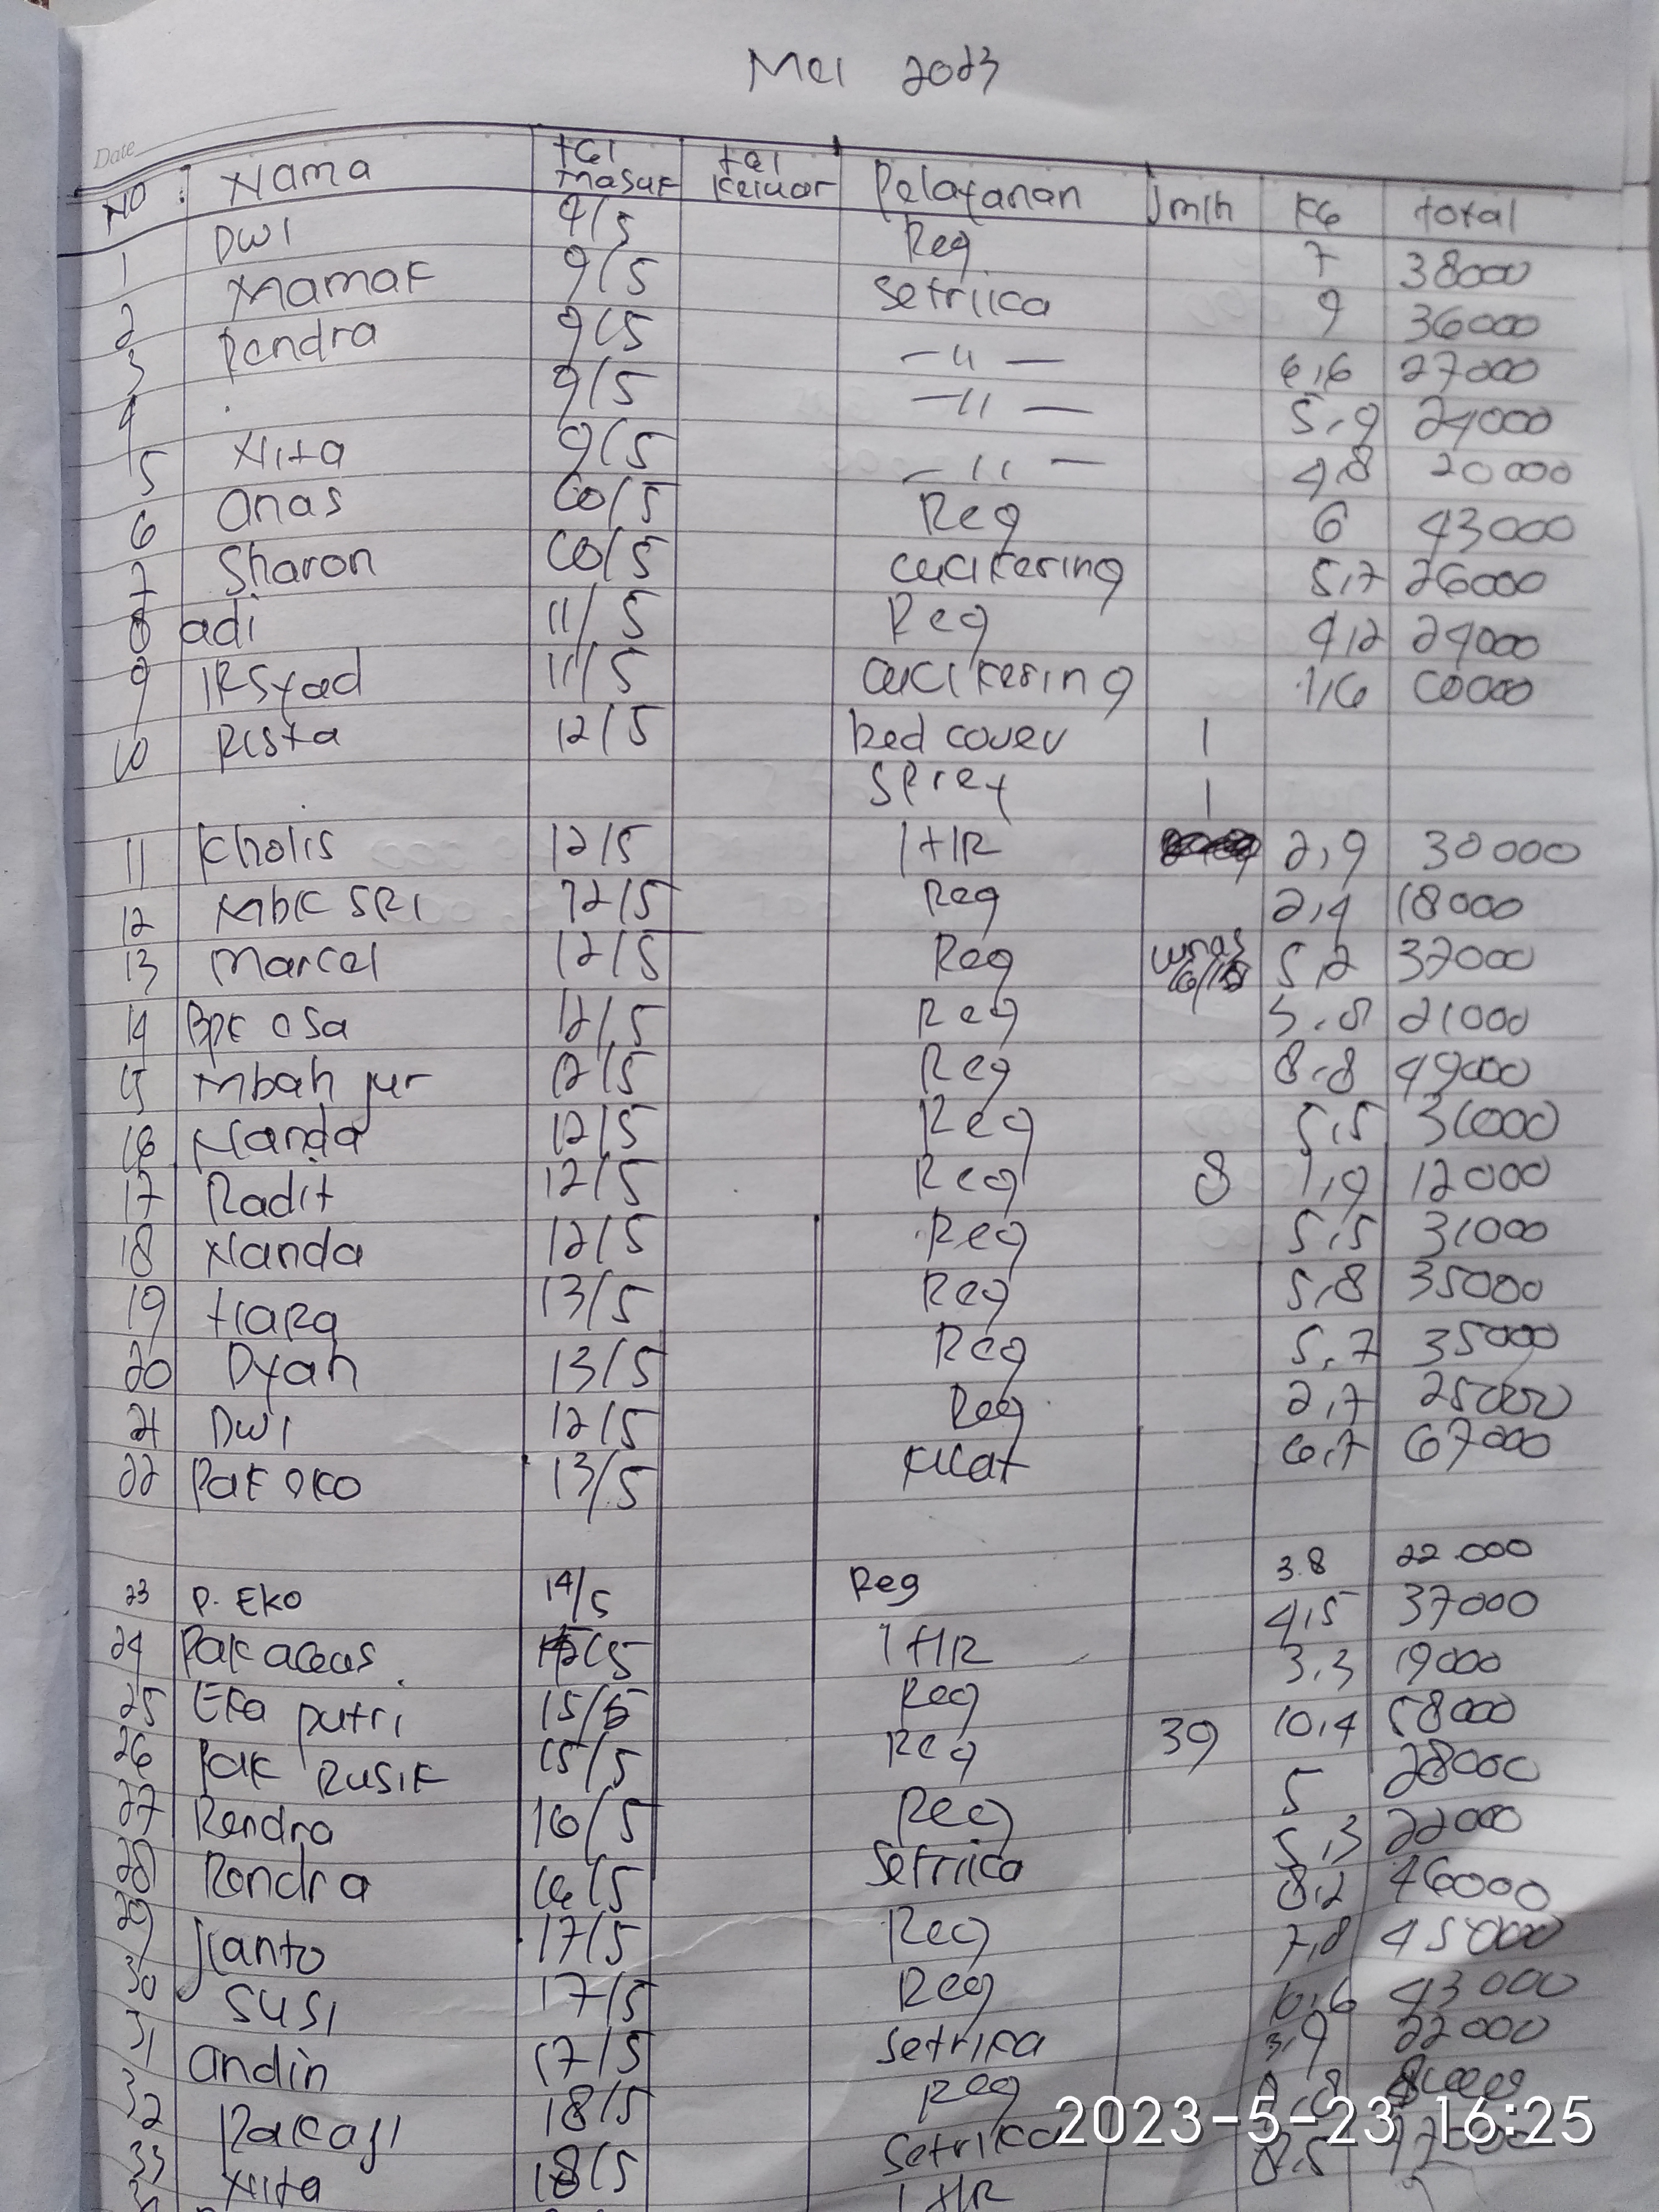 Mei 2023
Date
NO : Nama tgl Masuk tgl Keluar Pelayanan Jmlh KG total
1 DWI 9/5 Reg 7 38000
2 Mamak 9/5 Setriica 9 36000
3 Rendra 9/5 -"- 6,6 27000
4 9/5 -"- 5,9 24000
5 Nita 9/5 -"- 4,8 20000
6 Anas 10/5 Reg 6 43000
7 Sharon 10/5 cucikering 5,7 26000
8 adi 11/5 Reg 4,2 24000
9 IRSyad 11/5 cucikering 1,6 10000
10 Rista 12/5 bed cover 1
Sprey 1
11 Kholis 12/5 1 HR 2,9 30000
12 Mbk SRI 12/5 Reg 2,4 18000
13 Marcel 12/5 Reg lunas 5,2 37000
14 Bpk osa 12/5 Reg 21000
15 Mbah jur 12/5 Reg 8,8 49000
16 Nanda 12/5 Reg 5,5 31000
17 Radit 12/5 Reg 8 1,9 12000
18 Nanda 12/5 Reg 5,5 31000
19 tiaRa 13/5 Reg 5,8 35000
20 Dyah 13/5 Reg 5,7 35000
21 DWI 12/5 Reg 2,7 25000
22 Pak eko 13/5 Kilat 6,7 67000
23 P. EKO 14/5 Reg 3.8 22.000
24 Pak agus /5 1 HR 4,5 37000
25 Eka putri 15/5 Reg 3,3 19000
26 Pak RUSIK 15/5 Reg 39 10,4 58000
27 Rendra 16/5 Reg 5 28000
28 Rendra 16/5 Setriica 5,3 22000
29 Jianto 17/5 Reg 8,2 46000
30 SUSI 17/5 Reg 7,8 45000
31 andin 17/5 Setrika 6,6 43000
32 Pak aji 18/5 Reg 3,9 22000
33 Nita 18/5 Setrika
1 HR 8,5
2023-5-23 16:25